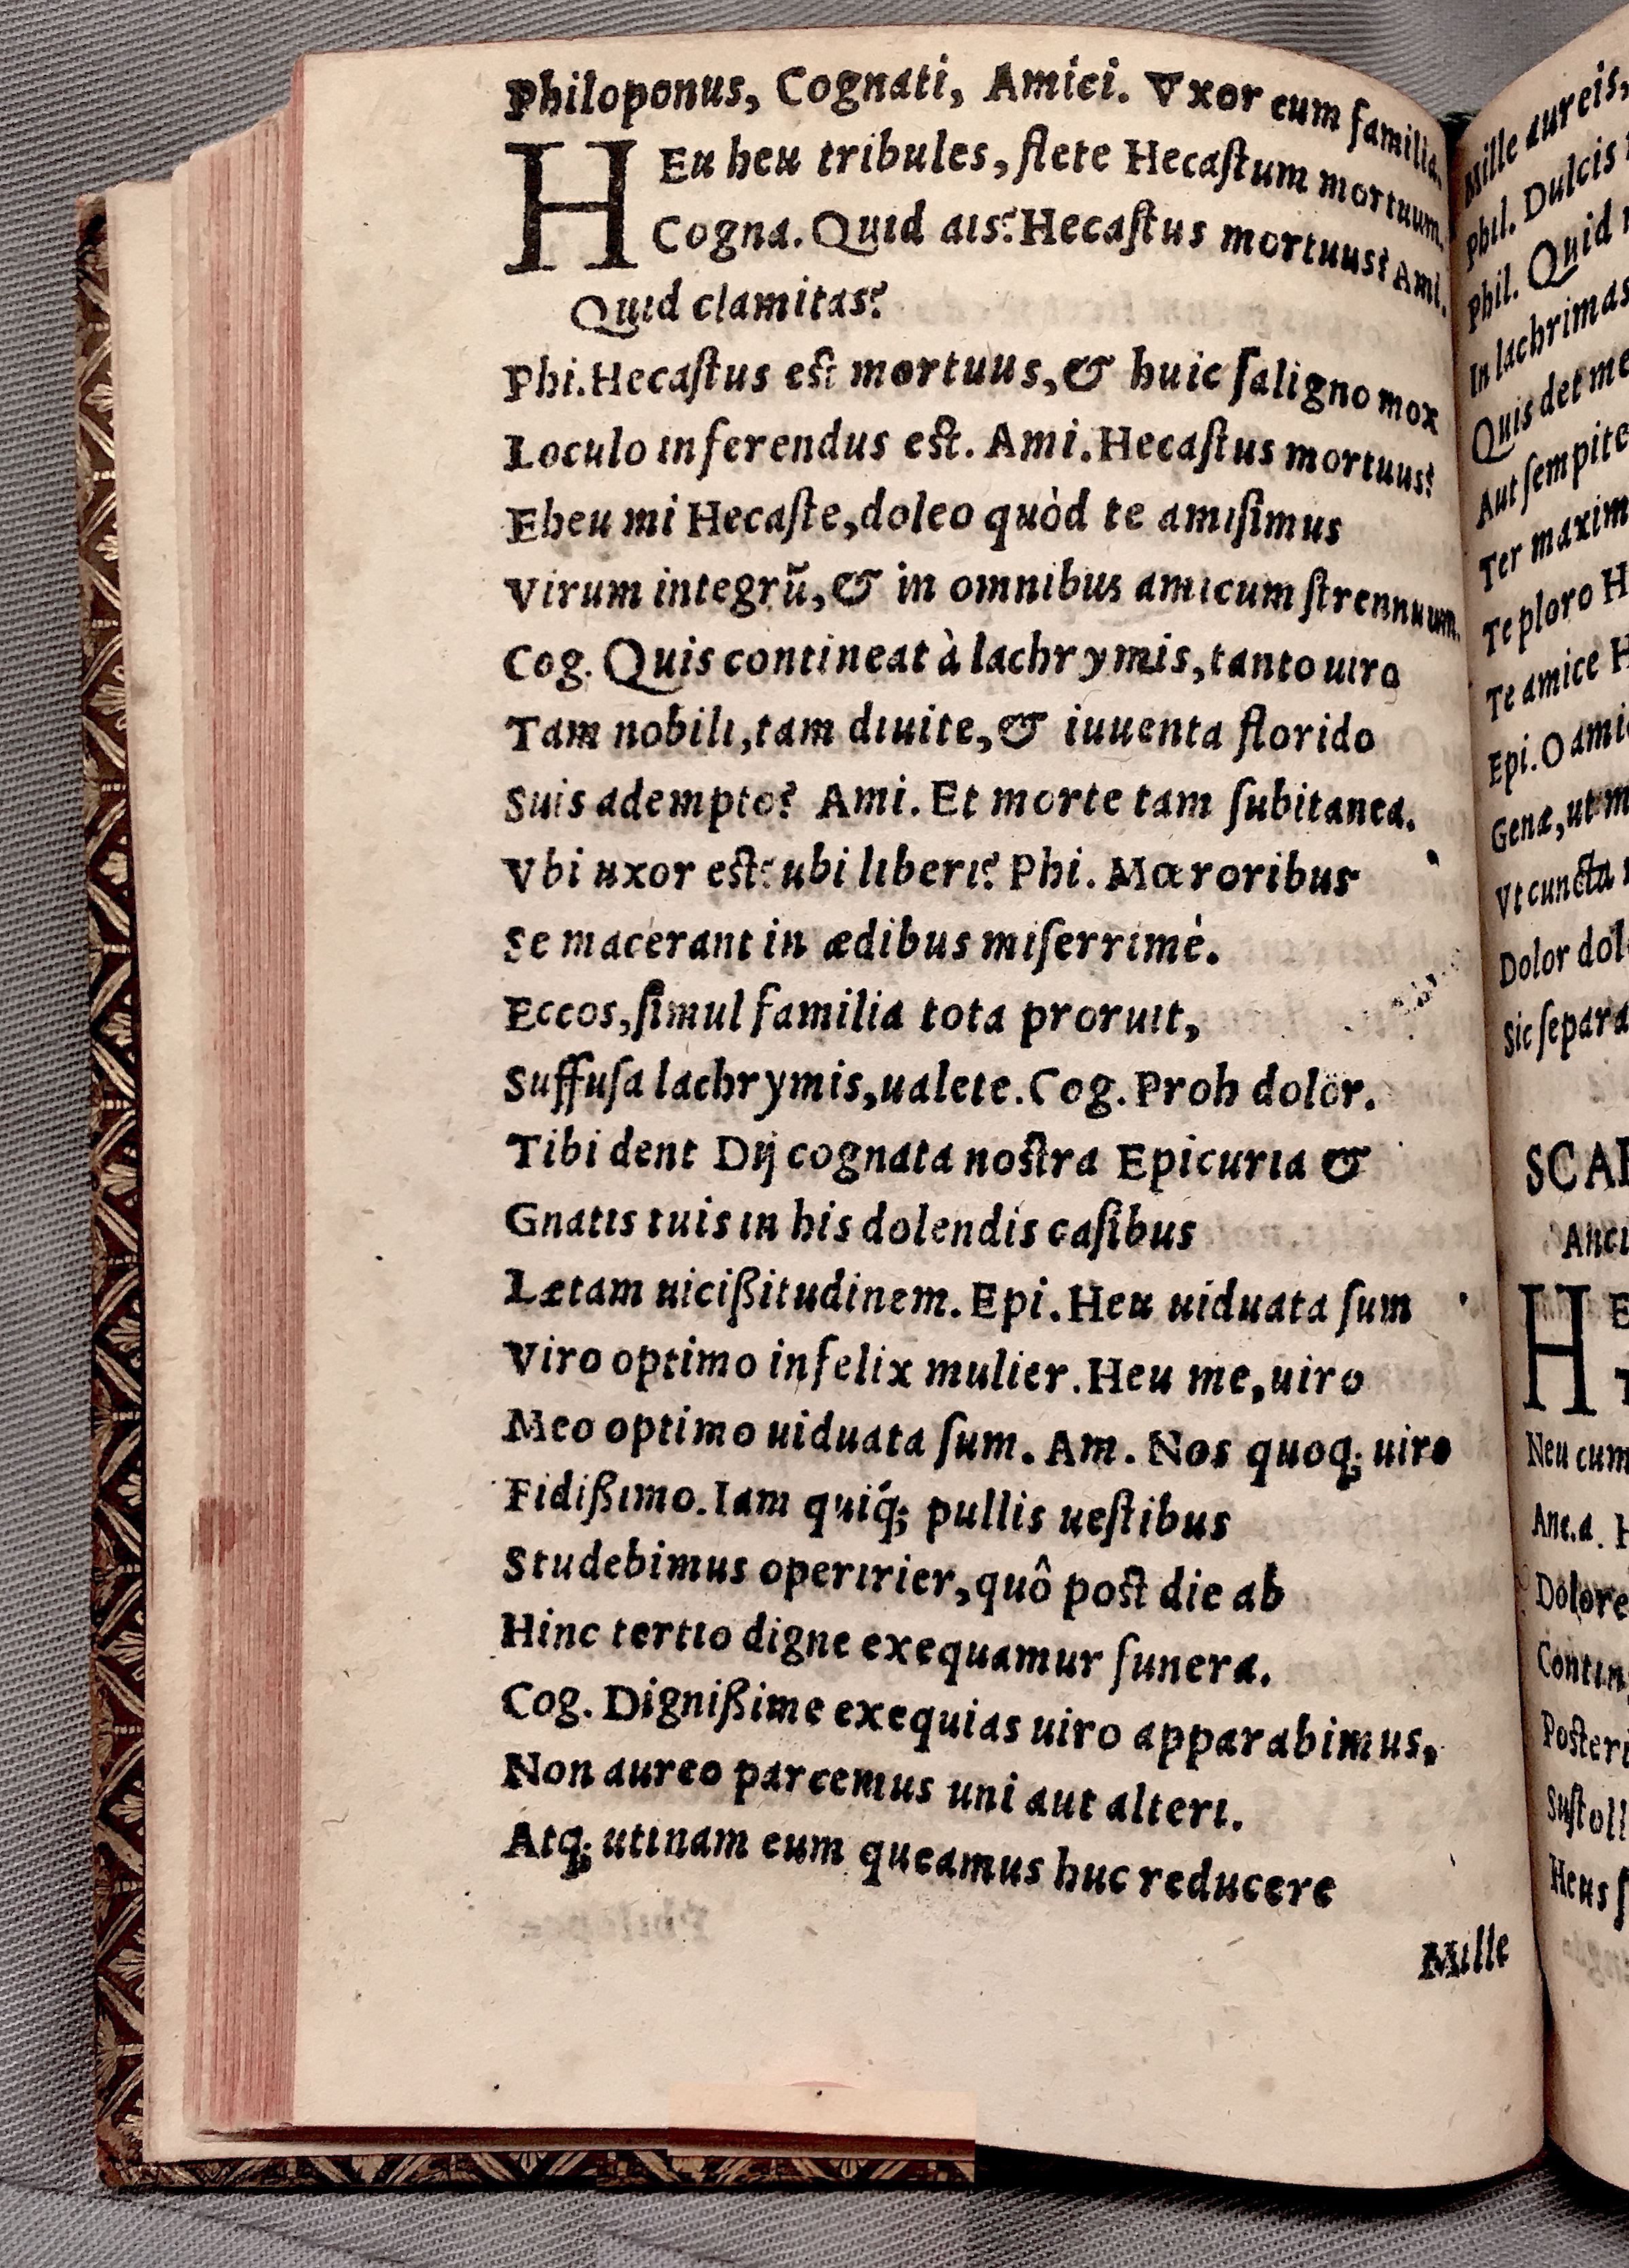 Philoponus, Cognati, Amici. Vxor cum familia.
HEu heu tribules, flete Hecaſtum mortuum.
Cogna. Quid ais? Hecaſtus mortuus? Ami.
Quid clamitas?
Phi. Hecaſtus eſt mortuus, & huic ſaligno mox
Loculo inferendus eſt. Ami. Hecaſtus mortuus?
Eheu mi Hecaſte, doleo quòd te amiſimus
Virum integrũ, & in omnibus amicum ſtrennuum.
Cog. Quis contineat à lachrymis, tanto uiro
Tam nobili, tam diuite, & iuuenta florido
Suis adempto? Ami. Et morte tam ſubitanea.
Vbi uxor eſt? ubi liberi? Phi. Mœroribus
Se macerant in ædibus miſerrimè.
Eccos, ſimul familia tota proruit,
Suffuſa lachrymis, ualete. Cog. Proh dolor.
Tibi dent Dij cognata noſtra Epicuria &
Gnatis tuis in his dolendis caſibus
Lætam uicißitudinem. Epi. Heu uiduata ſum
Viro optimo infelix mulier. Heu me, uiro
Meo optimo uiduata ſum. Am. Nos quoq; uiro
Fidißimo. Iam quiq́; pullis ueſtibus
Studebimus operirier, quô poſt die ab
Hinc tertio digne exequamur funera.
Cog. Dignißime exequias uiro apparabimus,
Non aureo parcemus uni aut alteri.
Atq; utinam eum queamus huc reducere
Mille
Mille aureis,
Phil. Dulcis
Phil. Quid
In lachrimas
Quis det me
Aut
Ter
Te ploro
Te amice
Epi. O
Genæ, ut
Vt cuncta
Dolor
Sic
H
Neu cum
Anc.a.
Heus